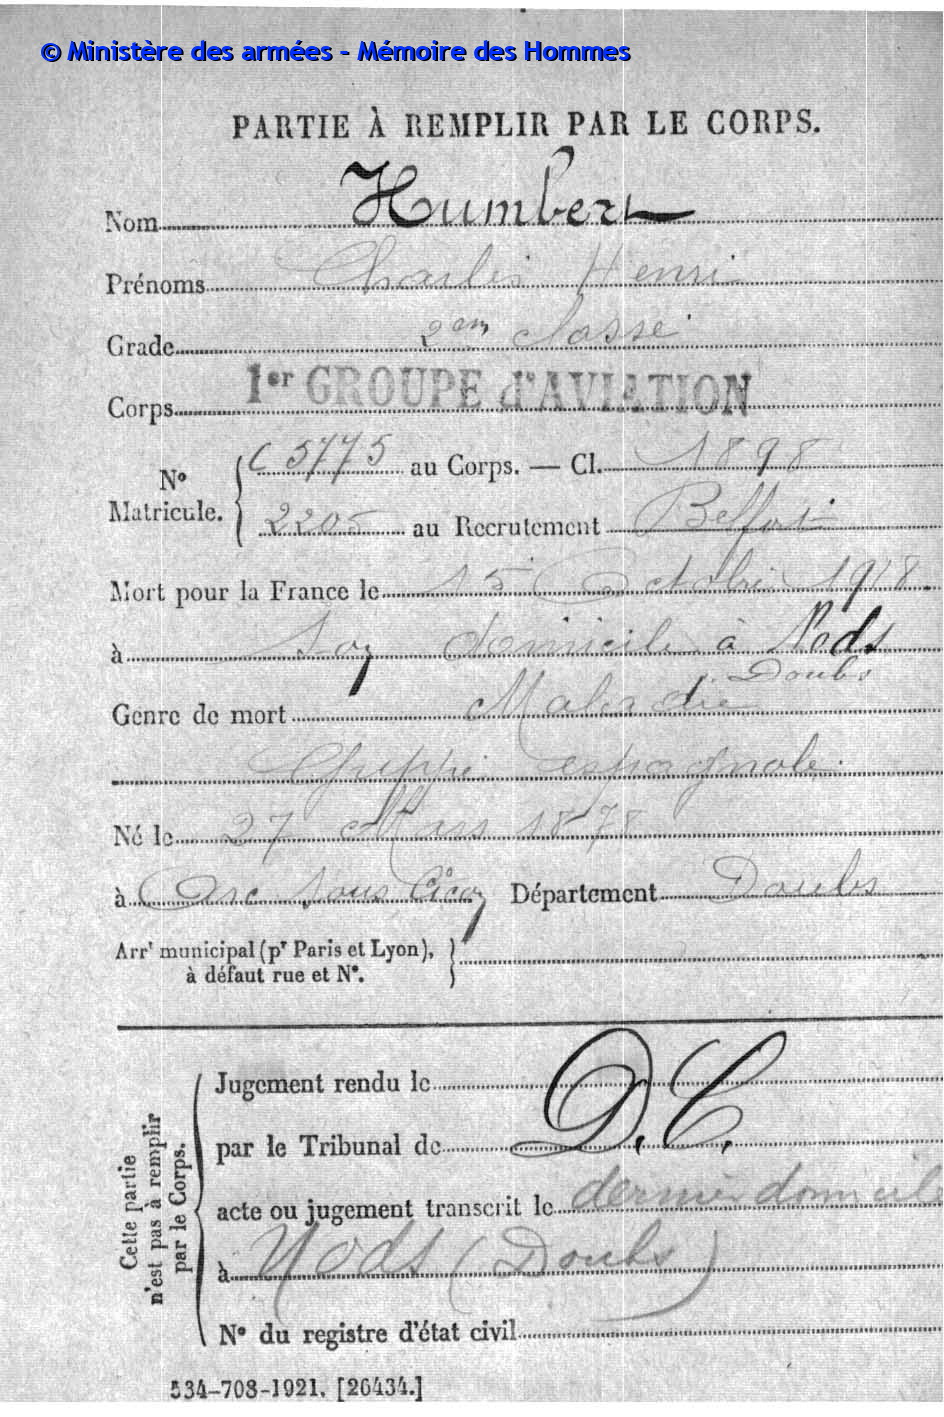 © Ministère des armées - Mémoire des Hommes
PARTIE À REMPLIR PAR LE CORPS.
Nom Humbert
Prénoms Charles Henri
Grade 2em classe
Corps 1er GROUPE d'AVIATION
No Matricule. { C 5775 au Corps. — Cl. 1898
2205 au Recrutement Belfort
Mort pour la France le 15 Octobre 1918.
à son domicile à Nods
Doubs
Genre de mort Maladie
Grippe espagnole.
Né le 27 Mars 1878
à Arc sous Cicon Département Doubs
Arrt municipal (pr Paris et Lyon),
à défaut rue et N°.
Cette partie n'est pas à remplir par le Corps.
Jugement rendu le
par le Tribunal de D.C.
acte ou jugement transcrit le dernier domicile
à Nods (Doubs)
N° du registre d'état civil
534-708-1921. [26434.]